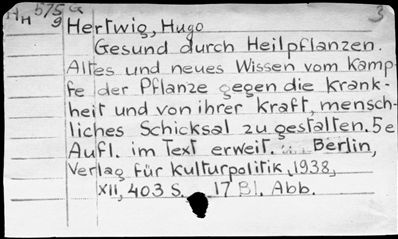 3
Hn 575a
9
Hertwig, Hugo
Gesund durch Heilpflanzen.
Altes und neues Wissen vom Kamp-
fe der Pflanze gegen die Krank-
heit und von ihrer Kraft, mensch-
liches Schicksal zu gestalten. 5e
Aufl. im Text erweit. ... Berlin,
Verlag für Kulturpolitik, 1938,
XII, 403 S. 17 Bl. Abb.